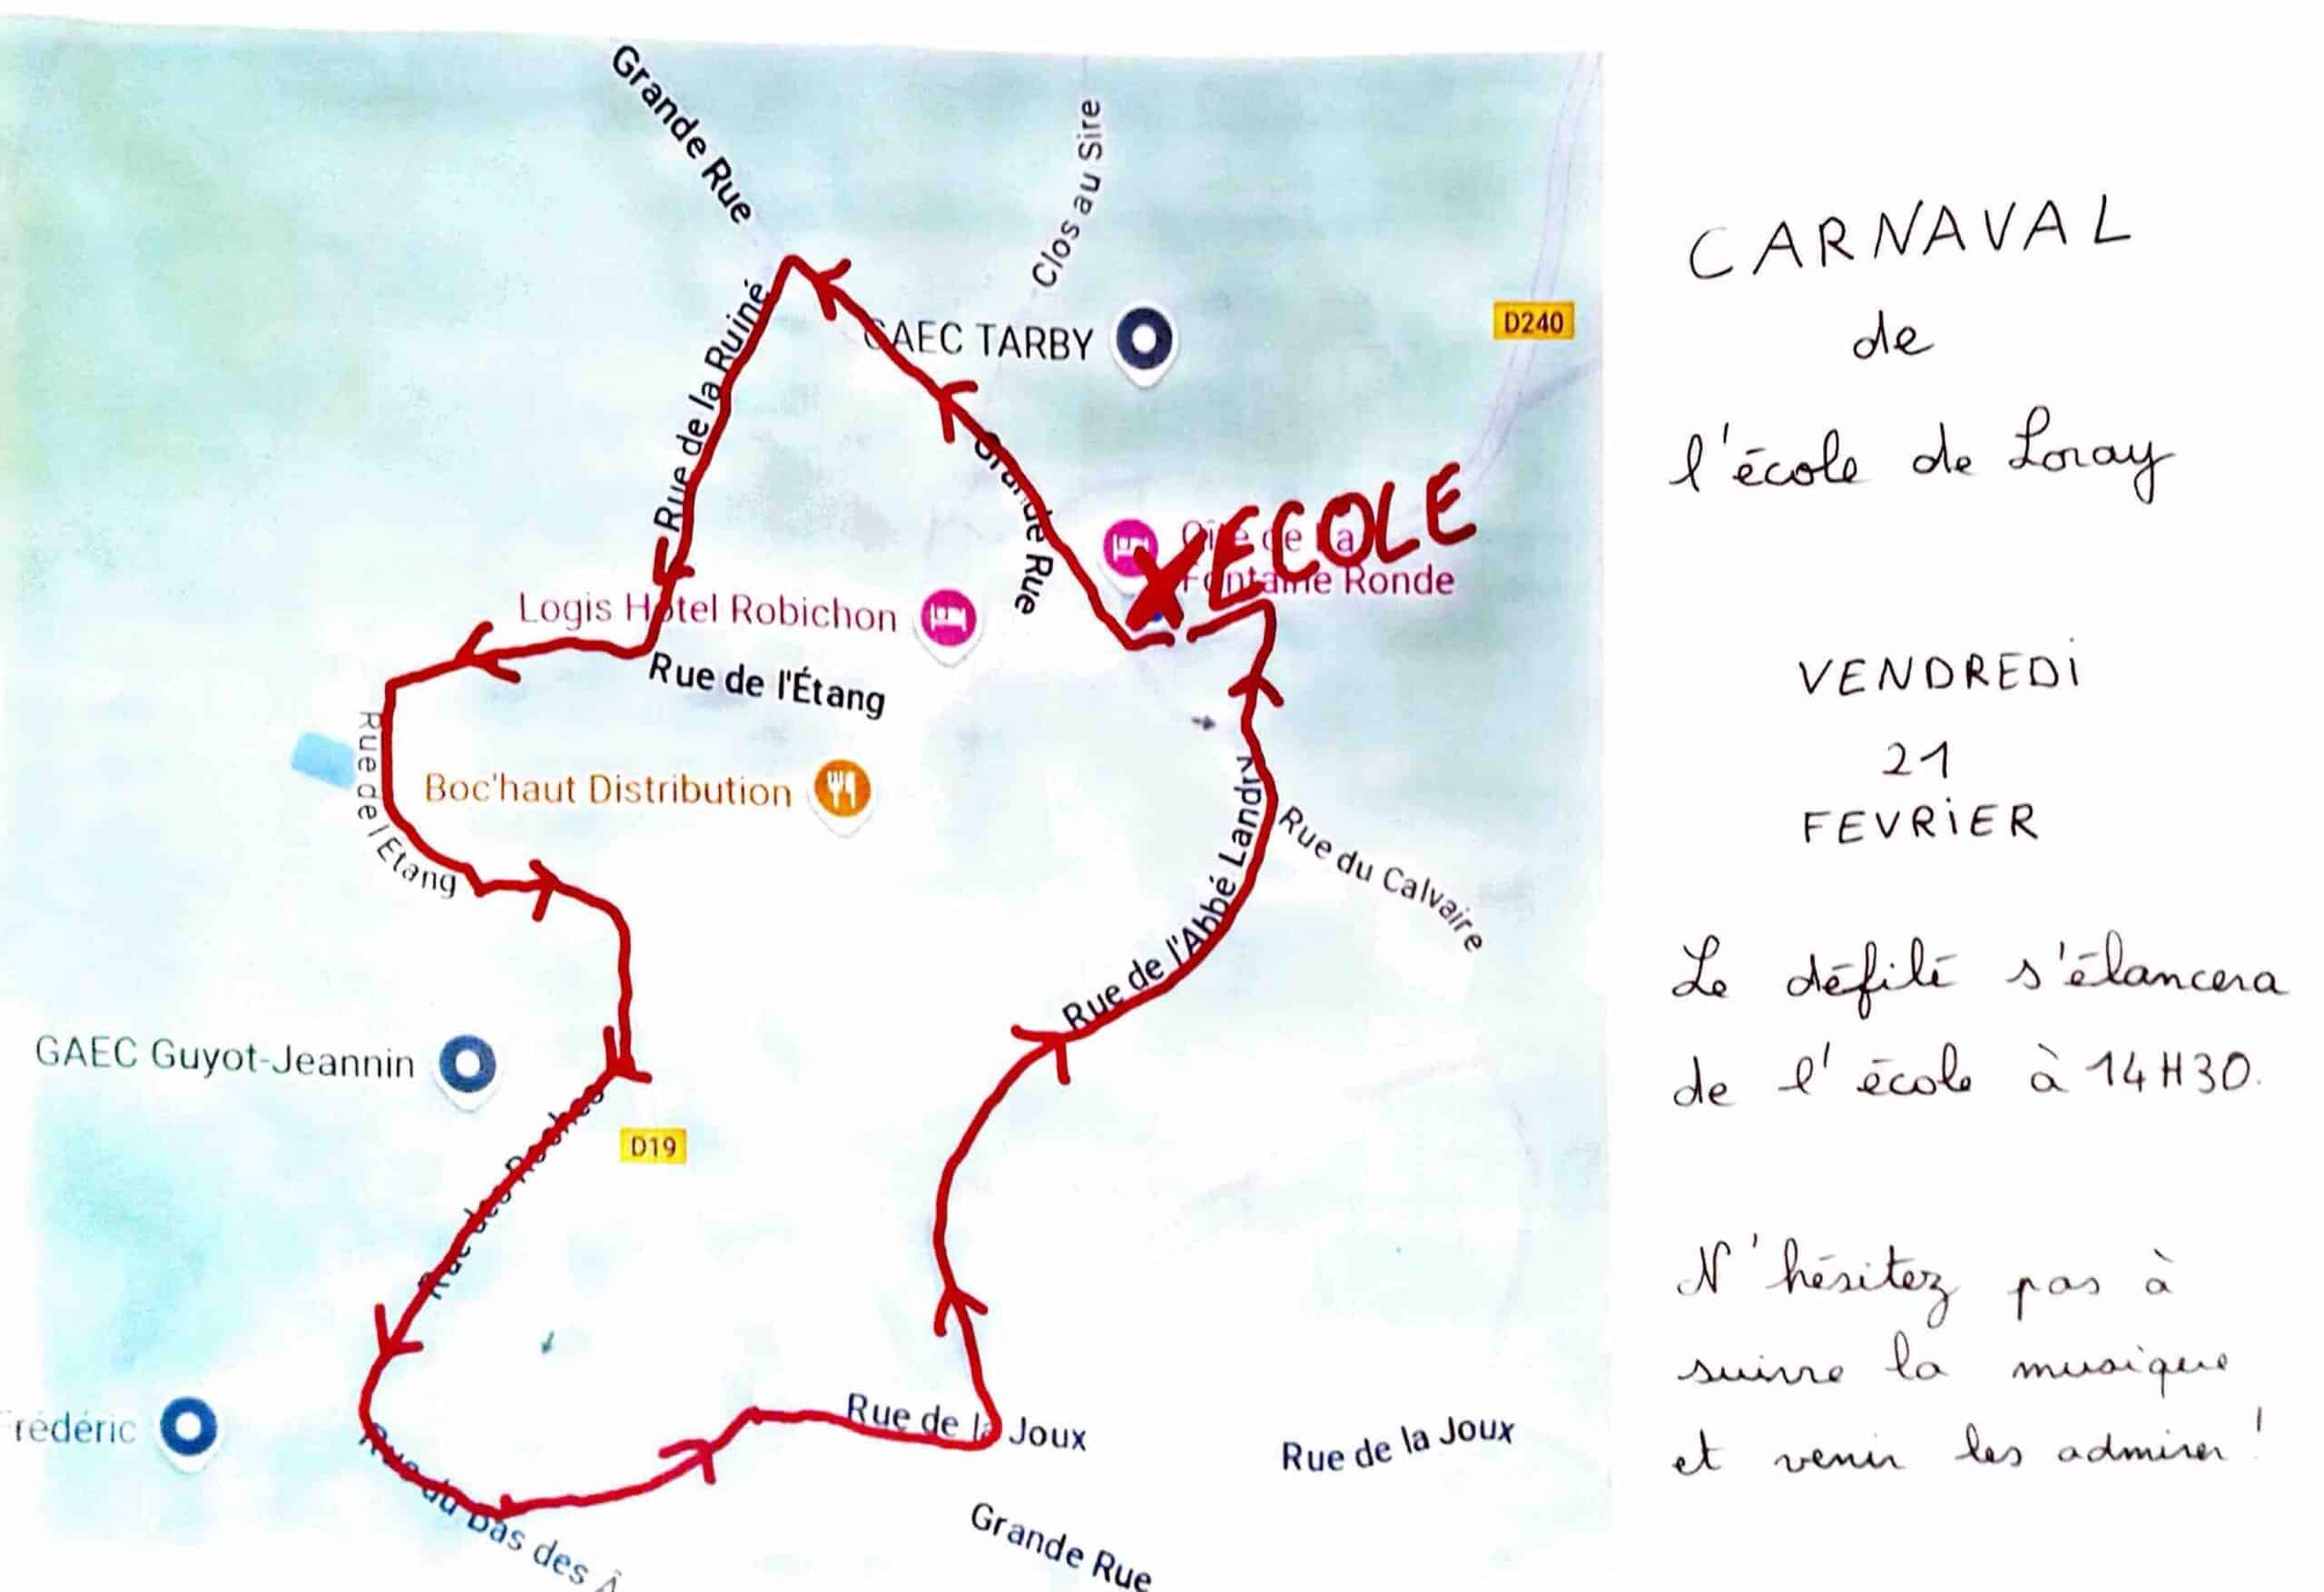 Grande Rue
Clos au Sire
Rue de la Ruiné
GAEC TARBY
D240
Grande Rue
X ECOLE
Fontaine Ronde
Logis Hôtel Robichon
Rue de l'Étang
Rue de l'Étang
Boc'haut Distribution
Rue de l'Abbé Landry
Rue du Calvaire
GAEC Guyot-Jeannin
D19
rédéric
Rue de la Joux
Rue de la Joux
Rue du Bas des
Grande Rue
CARNAVAL
de
l'école de Loray
VENDREDi
21
FEVRiER
Le défilé s'élancera
de l'école à 14H30.
N'hésitez pas à
suivre la musique
et venir les admirer !